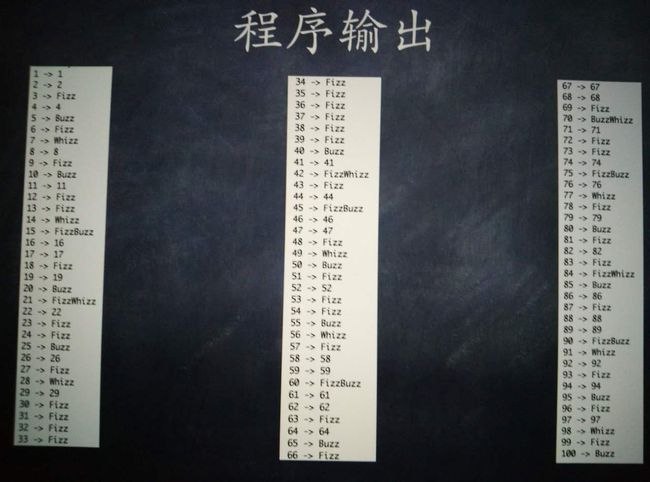 程序输出
1 -> 1
2 -> 2
3 -> Fizz
4 -> 4
5 -> Buzz
6 -> Fizz
7 -> Whizz
8 -> 8
9 -> Fizz
10 -> Buzz
11 -> 11
12 -> Fizz
13 -> Fizz
14 -> Whizz
15 -> FizzBuzz
16 -> 16
17 -> 17
18 -> Fizz
19 -> 19
20 -> Buzz
21 -> FizzWhizz
22 -> 22
23 -> Fizz
24 -> Fizz
25 -> Buzz
26 -> 26
27 -> Fizz
28 -> Whizz
29 -> 29
30 -> Fizz
31 -> Fizz
32 -> Fizz
33 -> Fizz
34 -> Fizz
35 -> Fizz
36 -> Fizz
37 -> Fizz
38 -> Fizz
39 -> Fizz
40 -> Buzz
41 -> 41
42 -> FizzWhizz
43 -> Fizz
44 -> 44
45 -> FizzBuzz
46 -> 46
47 -> 47
48 -> Fizz
49 -> Whizz
50 -> Buzz
51 -> Fizz
52 -> 52
53 -> Fizz
54 -> Fizz
55 -> Buzz
56 -> Whizz
57 -> Fizz
58 -> 58
59 -> 59
60 -> FizzBuzz
61 -> 61
62 -> 62
63 -> Fizz
64 -> 64
65 -> Buzz
66 -> Fizz
67 -> 67
68 -> 68
69 -> Fizz
70 -> BuzzWhizz
71 -> 71
72 -> Fizz
73 -> Fizz
74 -> 74
75 -> FizzBuzz
76 -> 76
77 -> Whizz
78 -> Fizz
79 -> 79
80 -> Buzz
81 -> Fizz
82 -> 82
83 -> Fizz
84 -> FizzWhizz
85 -> Buzz
86 -> 86
87 -> Fizz
88 -> 88
89 -> 89
90 -> FizzBuzz
91 -> Whizz
92 -> 92
93 -> Fizz
94 -> 94
95 -> Buzz
96 -> Fizz
97 -> 97
98 -> Whizz
99 -> Fizz
100 -> Buzz